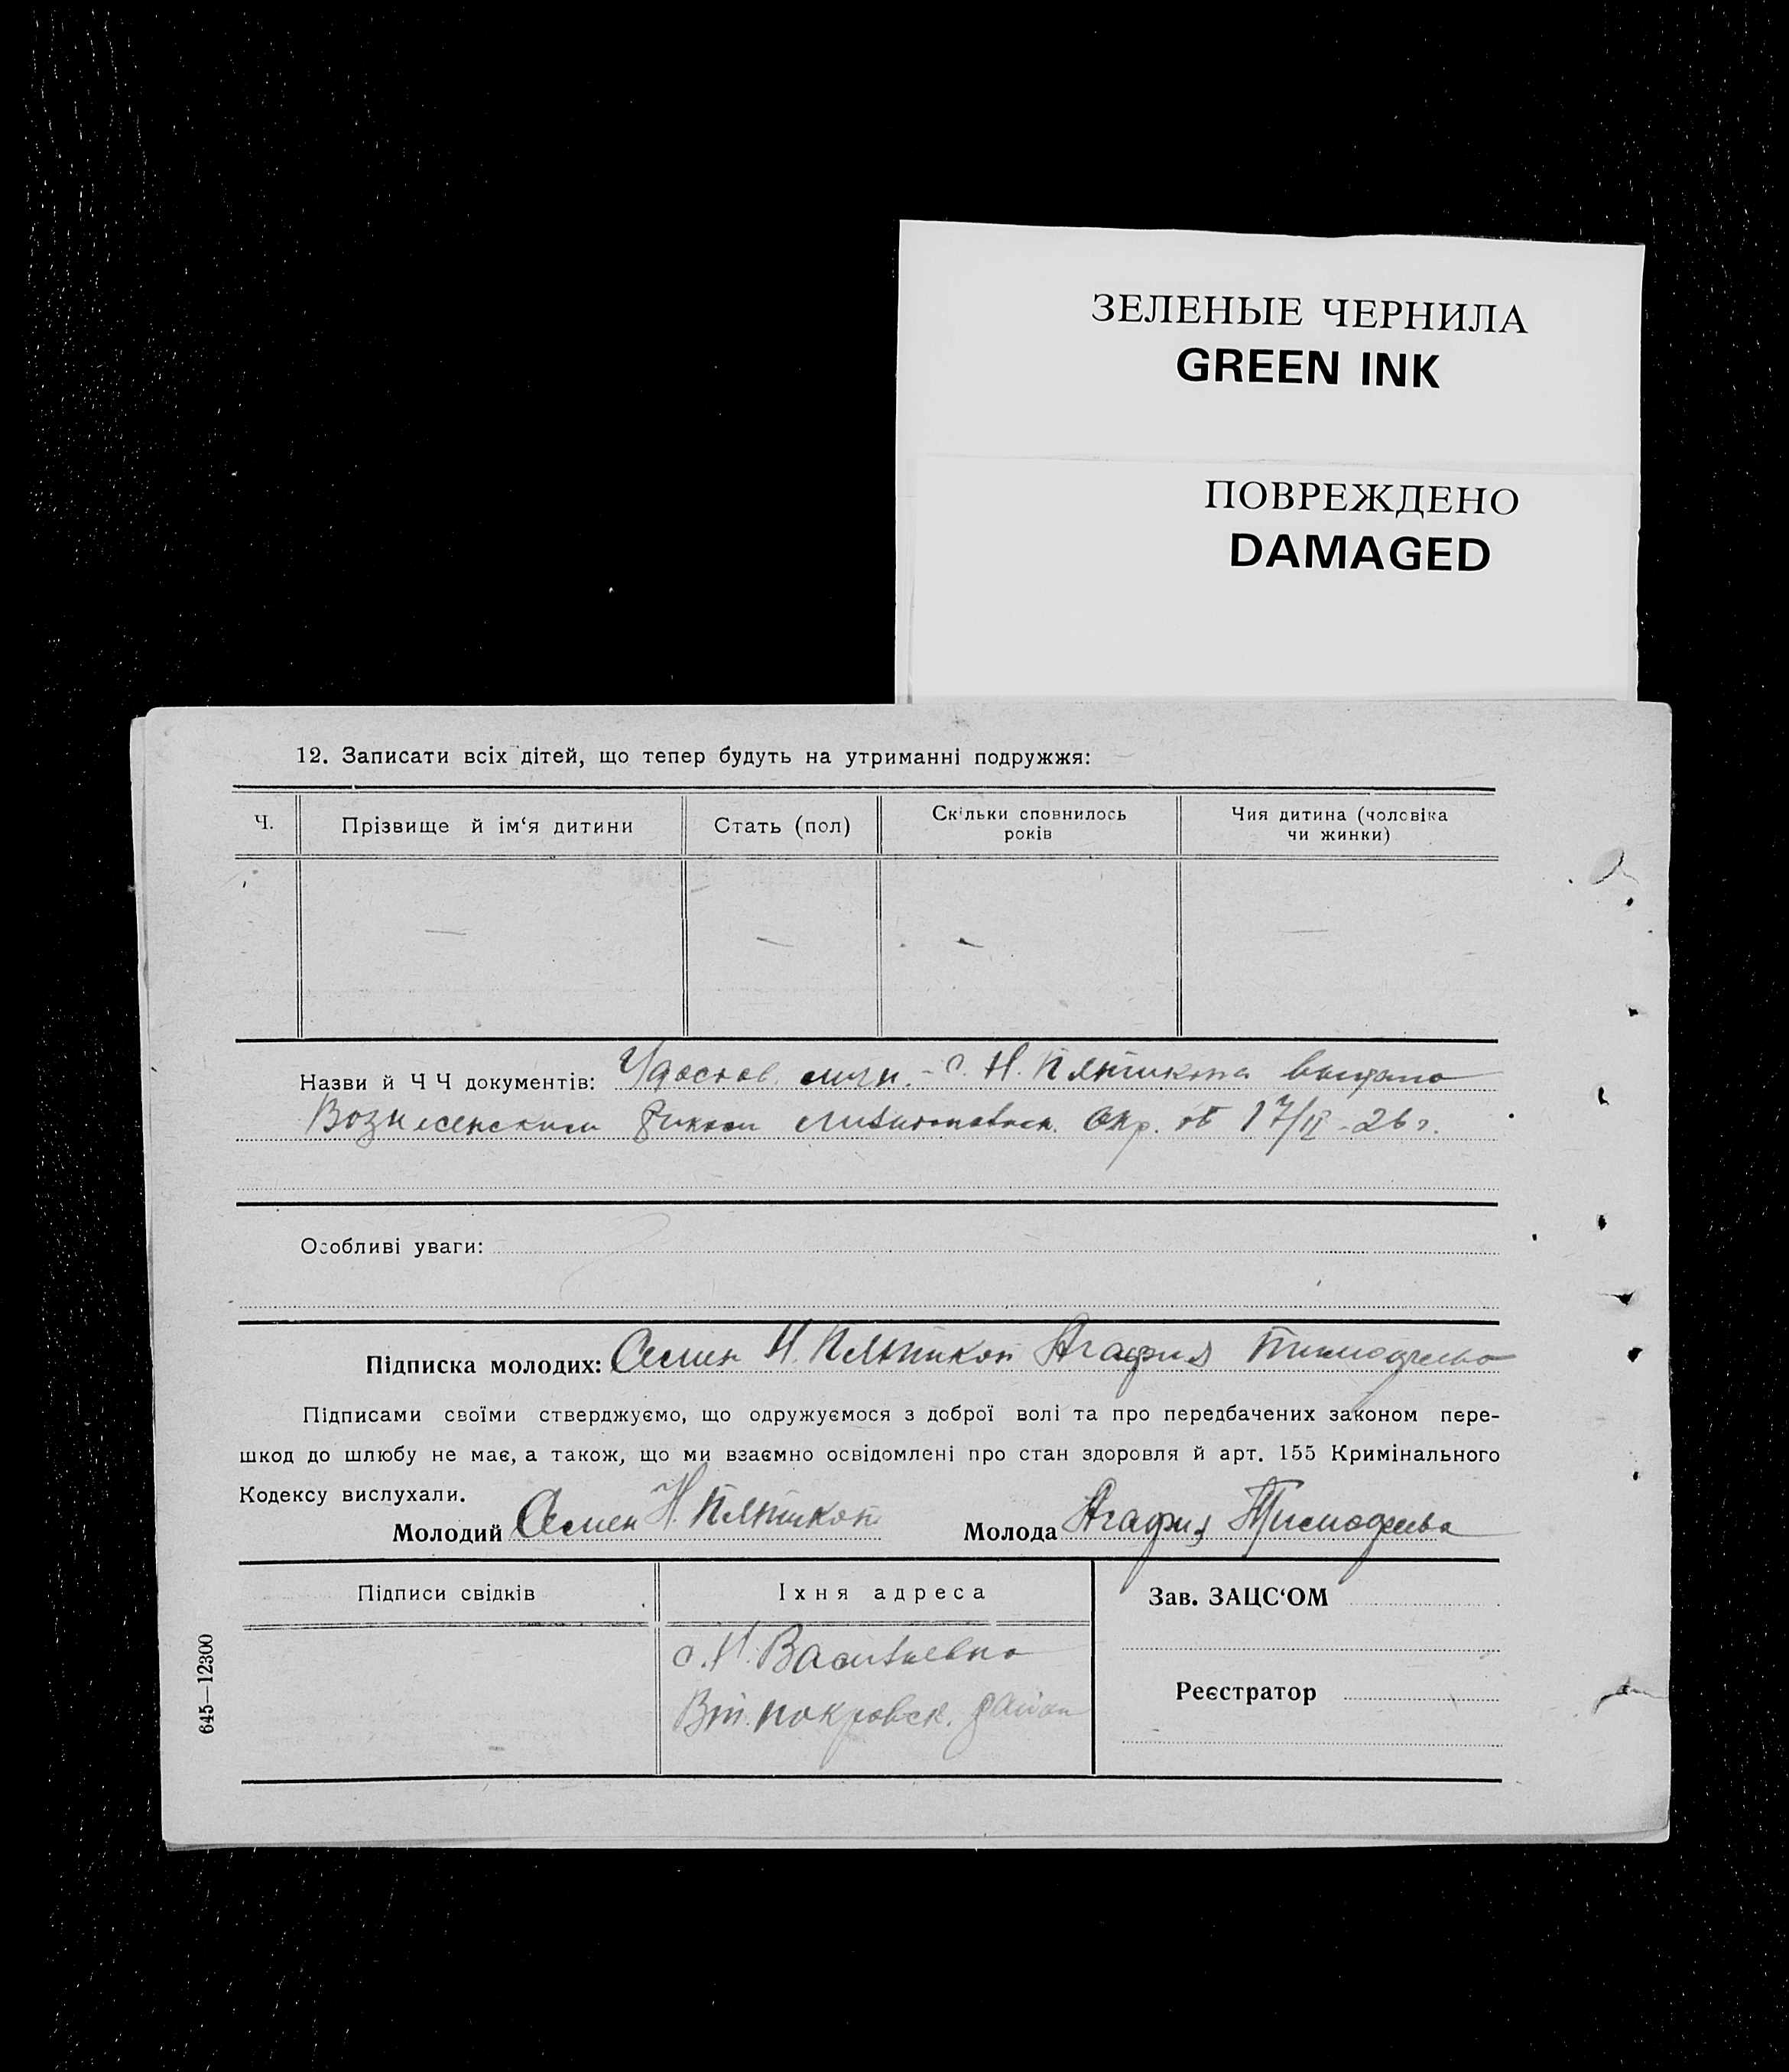 ЗЕЛЕНЫЕ ЧЕРНИЛА
GREEN INK
ПОВРЕЖДЕНО
DAMAGED
12. Записати всіх дітей, що тепер будуть на утриманні подружжя:
Ч.
Прізвище й ім‘я дитини
Стать (пол)
Скільки сповнилось
років
Чия дитина (чоловіка
чи жинки)
Назви й Ч Ч документів: Удостов. личн. - С. Н. Пляшикопа выдано
Вознесенским Окр. от 17/II - 26 г.
Особливі уваги:
Підписка молодих: Семен Н. Агафия Тимофеева
Підписами своїми стверджуємо, що одружуємося з доброї волі та про передбачених законом пере-
шкод до шлюбу не має, а також, що ми взаємно освідомлені про стан здоровля й арт. 155 Кримінального
Кодексу вислухали.
Молодий Семен Н.
Молода Агафия Тимофеева
Підписи свідків
Їхня адреса
Зав. ЗАЦС‘ОМ
с. Н. Васильевка
Вт. покровск. район
Реєстратор
645—12300